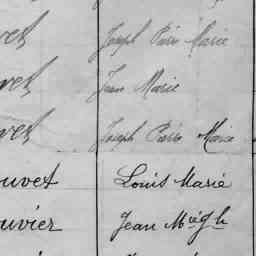 vet Joseph Pierre Marie
vet Jean Marie
vet Joseph Pierre Marie
ouvet Louis Marie
ouvier Jean